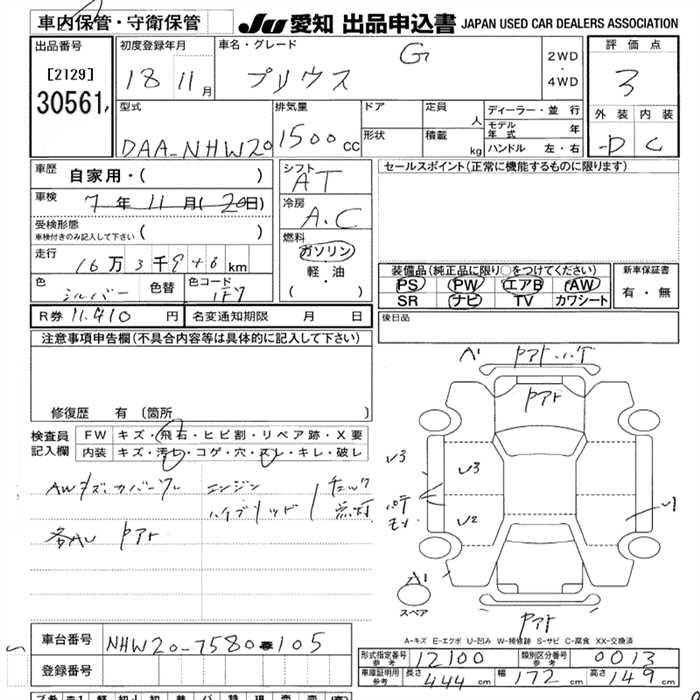 車内保管・守衛保管 JU 愛知 出品申込書 JAPAN USED CAR DEALERS ASSOCIATION
出品番号 初度登録年月 車名・グレード 評価点
[2129] 18 11月 プリウス G 2WD・4WD 3
30561,
型式 排気量 ドア 定員 人 ディーラー・並行 外装 内装
DAA-NHW20 1500cc 形状 積載 kg モデル年式 年 D C
ハンドル 左・右
車歴 自家用・( ) シフト AT セールスポイント(正常に機能するものに限ります)
車検 7年11月(20日) 冷房 A.C
受検形態
車検付きのみ記入して下さい ( ) 燃料 ガソリン
走行 16万3千9 6km 軽・油
色 シルバー 色替 色コード 1F7 ( ・ )
装備品(純正品に限り○をつけてください) 新車保証書
PS PW エアB AW 有・無
SR ナビ TV カワシート
R券 11,410円 名変通知期限 月 日 後日品
注意事項申告欄(不具合内容等は具体的に記入して下さい)
修復歴 有 (箇所 )
検査員 FW キズ・飛石・ヒビ割・リペア跡・X要
記入欄 内装 キズ・汚レ・コゲ・穴・スレ・キレ・破レ
AWキズ・カバーワレ エンジン チェック
ハイブリッド 点灯
各AU Pアト
Pアト・ハゲ
Pアト
U3 U3
U2 U1
A1
スペア
Pアト
A-キズ E-エクボ U-凹み W-補修跡 S-サビ C-腐食 XX-交換済
車台番号 NHW20-7580105
登録番号
形式指定番号 参考 12100 類別区分番号 参考 0013
車庫証明用 参考 長さ 444cm 幅 172cm 高さ 149cm